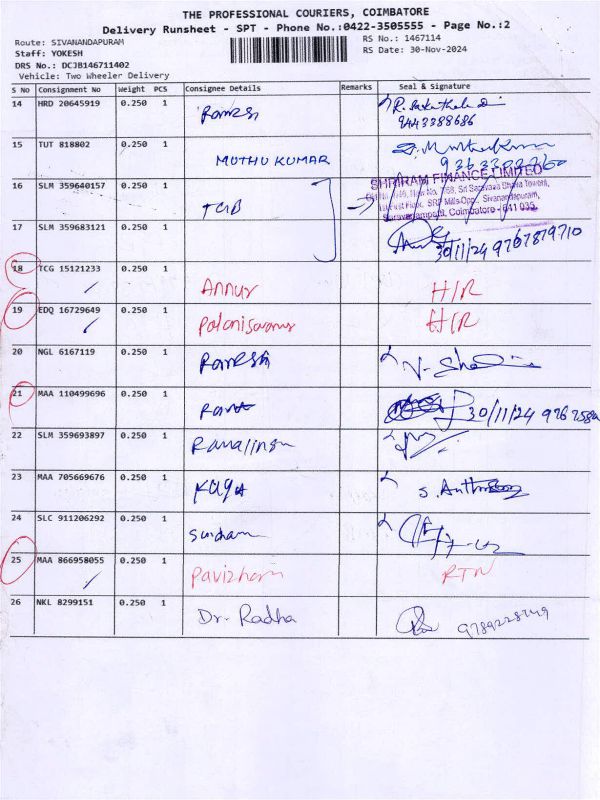 THE PROFESSIONAL COURIERS, COIMBATORE
Delivery Runsheet - SPT - Phone No.:0422-3505555 - Page No.:2
Route: SIVANANDAPURAM
RS No.: 1467114
Staff: YOKESH
RS Date: 30-Nov-2024
DRS No.: DCJB146711402
Vehicle: Two Wheeler Delivery
S No Consignment No Weight PCS Consignee Details Remarks Seal & Signature
14 HRD 20645919 0.250 1 Ramesh
9443388686
15 TUT 818802 0.250 1 MUTHU KUMAR
16 SLM 359640157 0.250 1 TCIB
SHRIRAM FINANCE LIMITED
Coimbatore - 641 035
17 SLM 359683121 0.250 1 30/11/24 9767879710
18 TCG 15121233 0.250 1 Annur H/R
19 EDQ 16729649 0.250 1 H/R
20 NGL 6167119 0.250 1 Ramesh
21 MAA 110499696 0.250 1 30/11/24
22 SLM 359693897 0.250 1 Ramalingam
23 MAA 705669676 0.250 1
24 SLC 911206292 0.250 1
25 MAA 866958055 0.250 1 Pavizham RTN
26 NKL 8299151 0.250 1 Dr. Radha